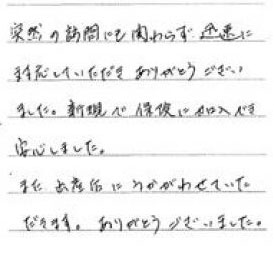 突然の訪問にも関わらず迅速に
対応していただきありがとうござい
ました。新規で保険に加入でき
安心しました。
また出産后にうかがわせていた
だきます。ありがとうございました。